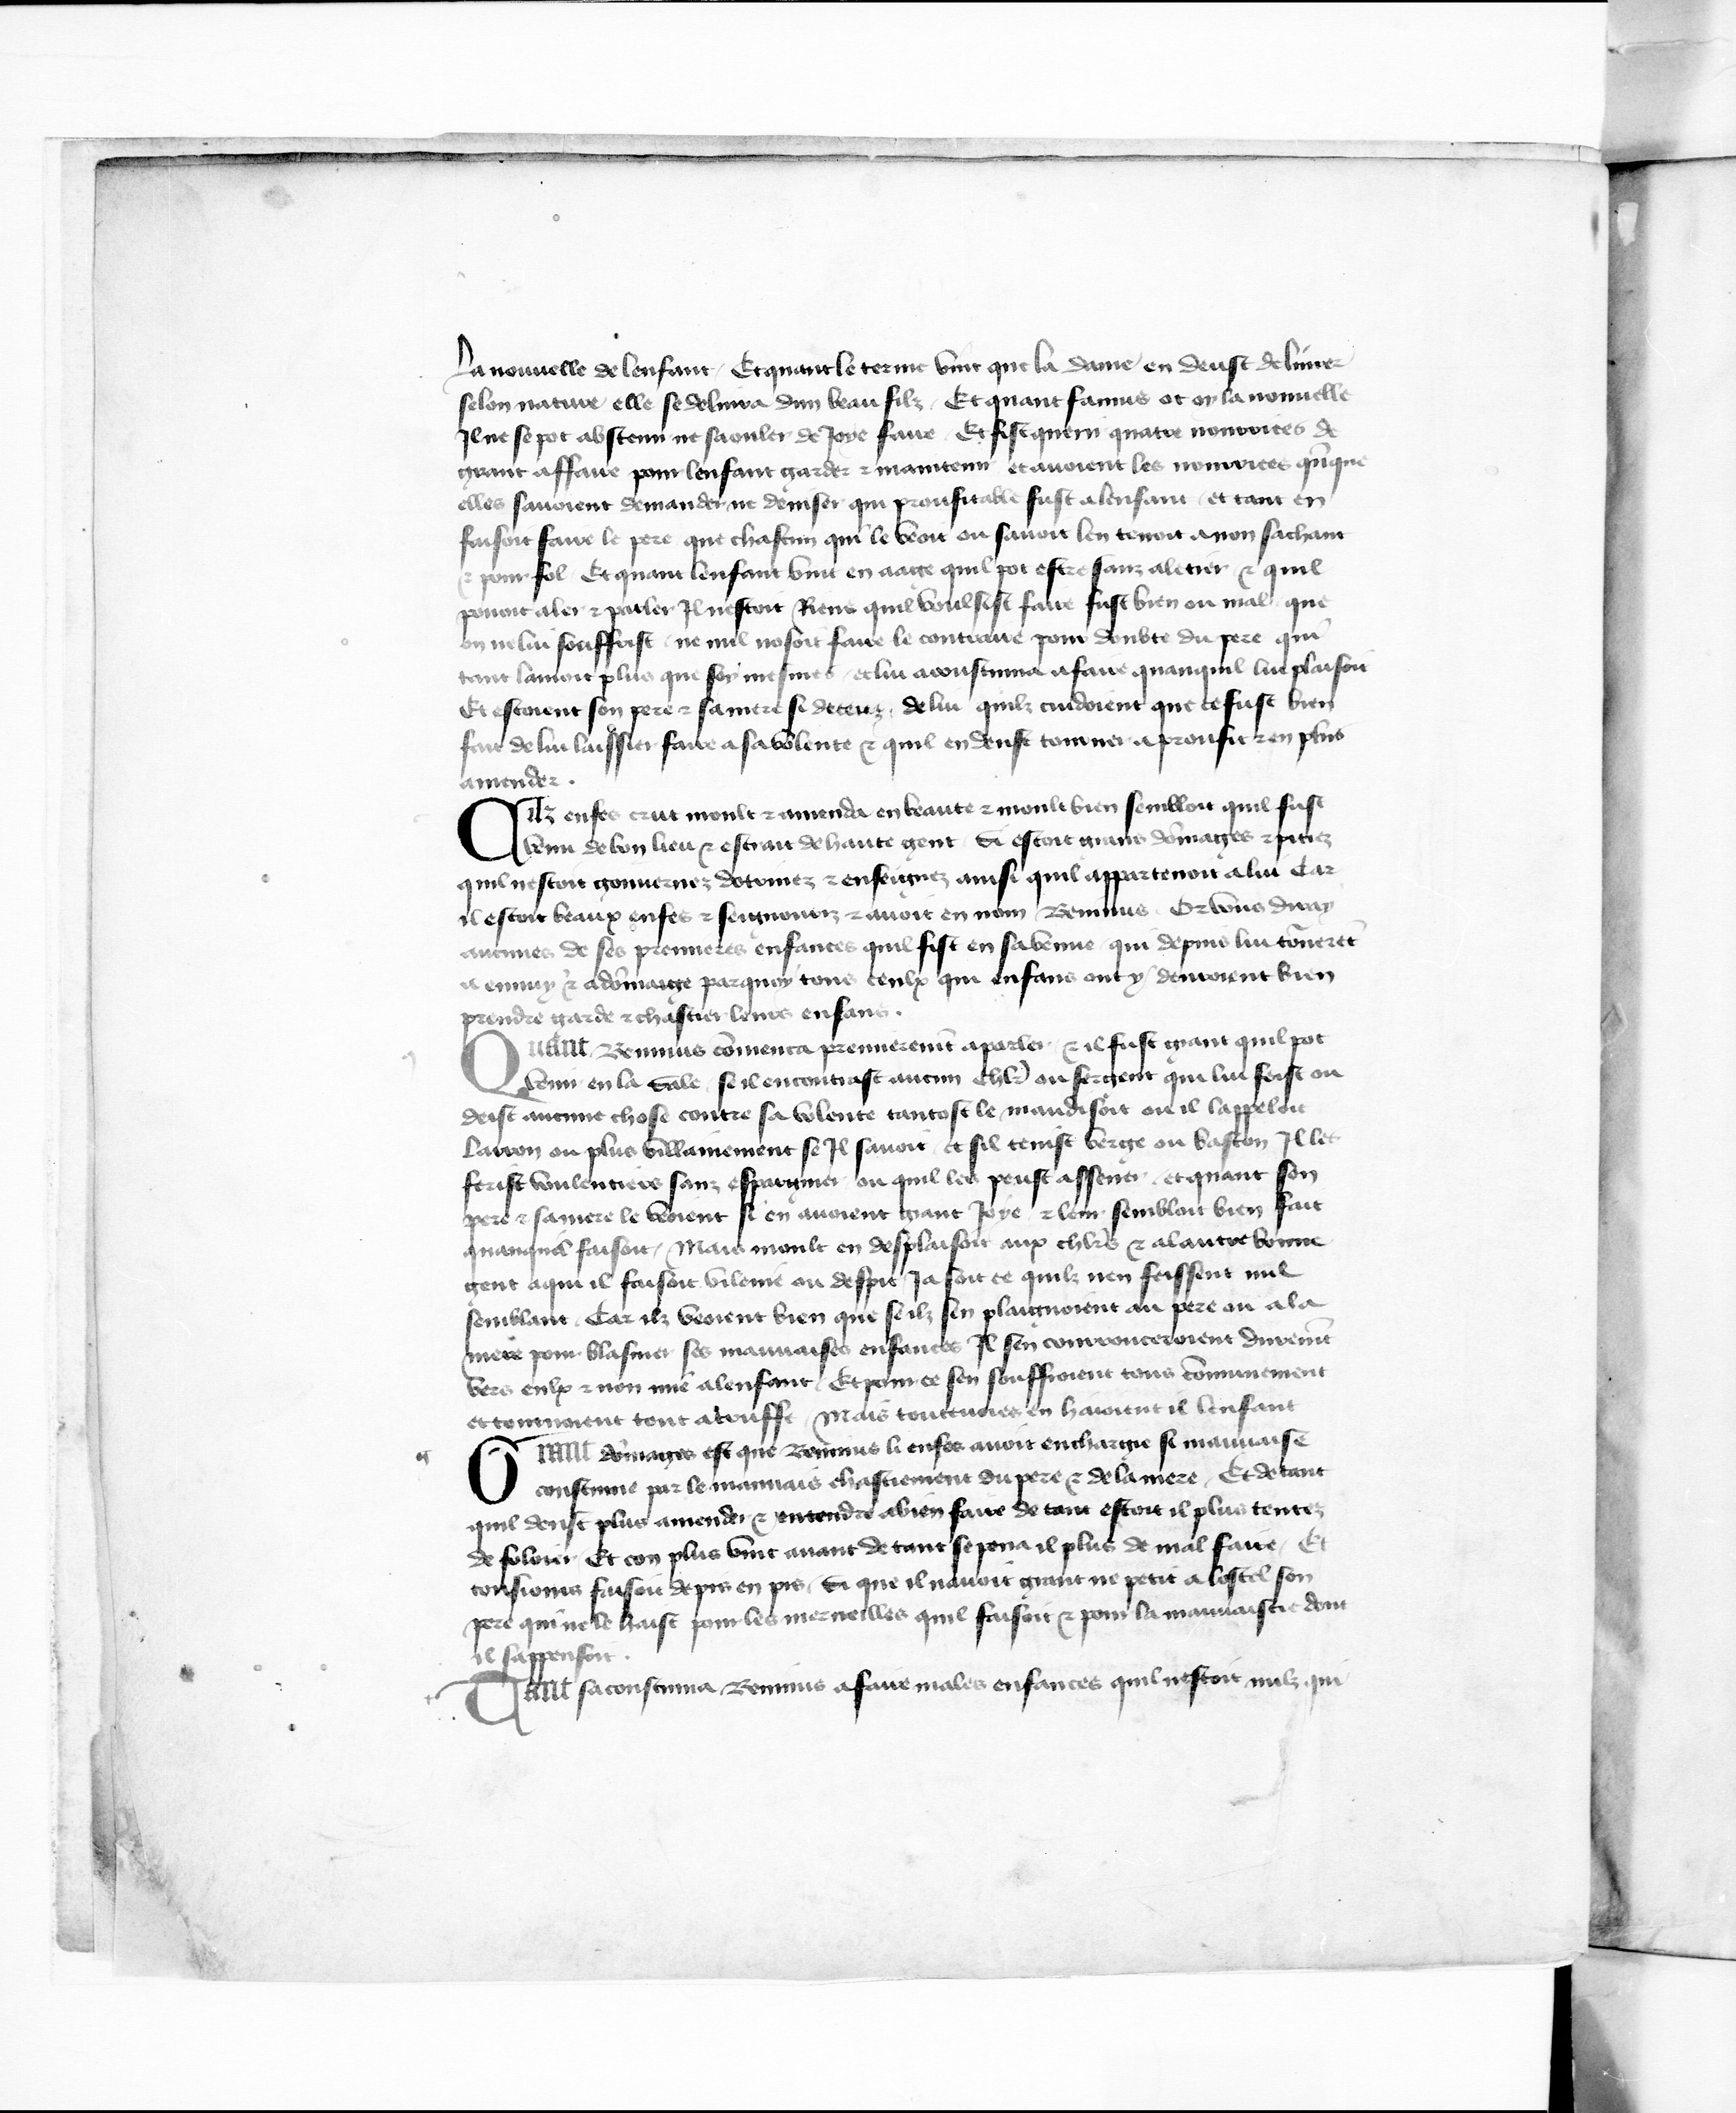 La nouuelle de lenfant / Et quant le terme vint que la dame en deust deliurer
selon nature elle se deliura dun beau filz / Et quant fainus ot oy la nouuelle
Il ne se pot abstenir ne saouler de Joye faire / Et fist querir quatre nourrices de
grant affaire pour lenfant garder ⁊ maintenir et auoient les nourrices qūque
elles sauoient demander ne deuiser qui proufitable fust a lenfant / et tant en
faisoit faire le pere que chascun qui le veoit ou sauoit len tenoit a non sachant
⁊ pour fol / Et quant lenfant vint en aage quil pot estre sanz aletier ⁊ quil
pouoit aler ⁊ parler Il nestoit Riens quil voulsist faire fust bien ou mal que
on ne lui souffrist / ne nul nosoit faire le contraire pour doubte du pere qui
tant lamoit plus que soy mesmes / et lui acoustuma a faire quanquil lui plaisoit
Et estoient son pere ⁊ sa mere si deceuz de lui quilz cuidoient que ce fust bien
fait de lui laissier faire a sa volente ⁊ quil en deust tourner a proufit ⁊ en plus
amender .
Cilz enfes crut moult ⁊ amenda en beaute ⁊ moult bien sembloit quil fust
venu de bon lieu ⁊ estrait de haute gent / Si estoit grans dōmages ⁊ pitiez
quil nestoit gouuernez dotrinez ⁊ enseignez ainsi quil appartenoit a lui Car
il estoit beaux enfes ⁊ seignouriz ⁊ auoit en nom Berinus / Or vous diray
aucunes de ses premieres enfances quil fist en sa venue / qui depuis lui tōnerēt
a ennuy ⁊ a dōmaige parquoy tous ceulx qui enfans ont y deuroient bien
prendre garde ⁊ chastier leurs enfans .
Quant Berinus cōmenca premieremēt a parler ⁊ il fust grant quil pot
venir en la sale / se il encontrast aucun chlr̄ ou sergent qui lui feist ou
deist aucune chose contre sa volente tantost le maudisoit ou il lappeloit
Larron ou plus villainement se Il sauoit / et sil tenist verge ou baston Il les
ferist voulentiers sanz espargnier ou quil les peust assener / et quant son
pere ⁊ sa mere le veoient si en auoient grant Joye ⁊ leur sembloit bien fait
quanquil faisoit / Mais moult en desplaisoit aux chlr̄s ⁊ a lautre bonne
gent a qui il faisoit vilenie ou despit / Ja soit ce quilz nen feissent nul
semblant / Car ilz veoient bien que se ilz sen plaignoient au pere ou a la
mere pour blasmer ses mauuaises enfances Il sen courrouceroient duremēt
vers eulx ⁊ non mie a lenfant / Et pour ce sen souffroient tous cōmunement
et tournoient tout a truffe / Mais toutuoies en haioient il lenfant
g
Grant dōmages est que Berinus li enfes auoit enchargie si mauuaise
coustume par le mauuais chastiement du pere ⁊ de la mere / Et de tant
quil deust plus amender ⁊ entendre a bien faire de tant estoit il plus tentez
de foloier / Et con plus vint auant de tant se pena il plus de mal faire / Et
tousiours faisoit de pis en pis / Si que il nauoit grant ne petit a lostel son
pere qui ne le haist pour les merueilles quil faisoit ⁊ pour la mauuaistie dont
il sappensoit .
t
Tant sacoustuma Berinus a faire males enfances quil nestoit nulz qui